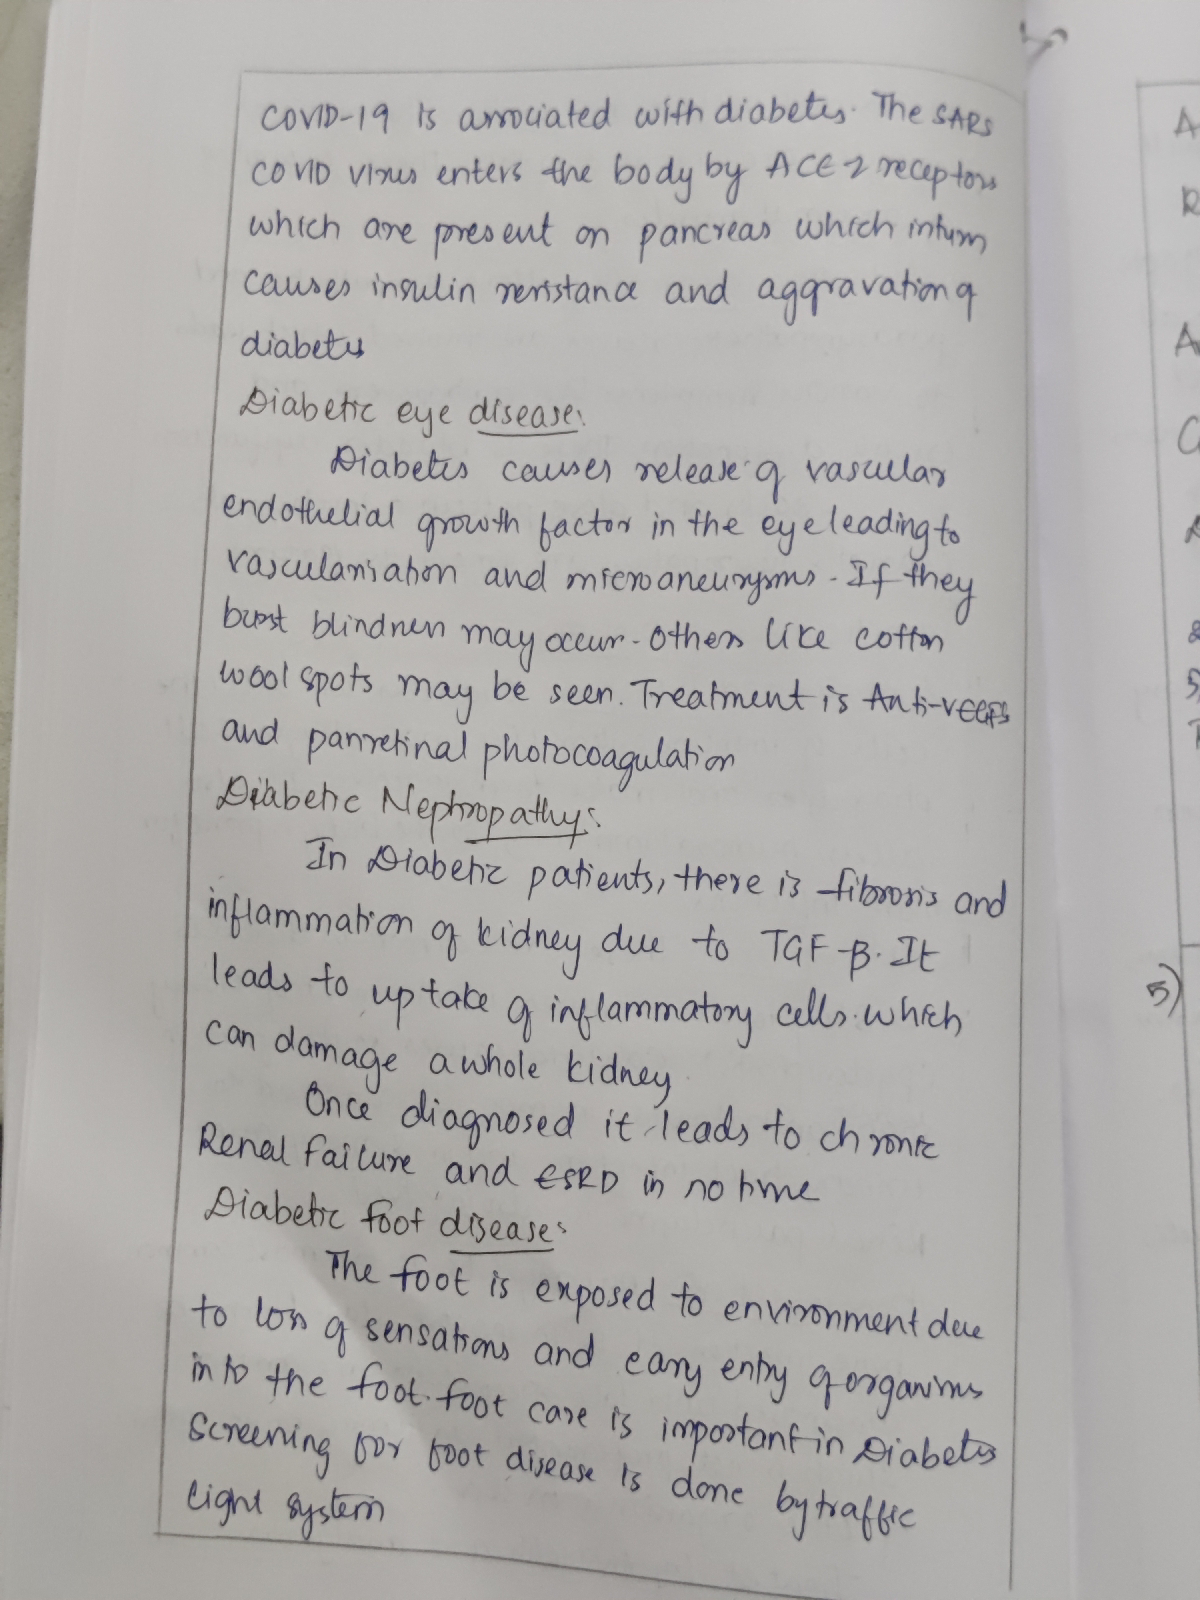 COVID-19 is associated with diabetes. The SARS
COVID virus enters the body by ACE 2 receptors
which are present on pancreas which inturn
causes insulin resistance and aggravation of
diabetes
Diabetic eye disease:
Diabetes causes release of vascular
endothelial growth factor in the eye leading to
vascularisation and microaneurysms. If they
burst blindness may occur. Others like cotton
wool spots may be seen. Treatment is Anti-VEGFs
and panretinal photocoagulation
Diabetic Nephropathy:
In Diabetic patients, there is fibrosis and
inflammation of kidney due to TGF-β. It
leads to uptake of inflammatory cells. which
can damage a whole kidney
Once diagnosed it leads to chronic
Renal failure and ESRD in no time
Diabetic foot disease:
The foot is exposed to environment due
to loss of sensations and easy entry of organisms
into the foot. foot care is important in Diabetes
Screening for foot disease is done by traffic
light system
5)